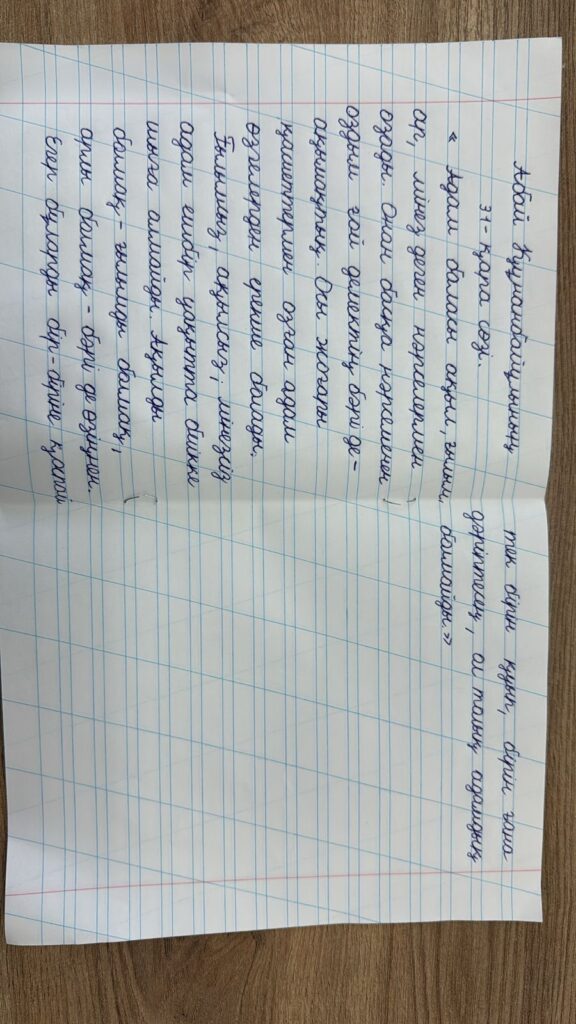 Абай Құнанбайұлының
31-қара сөзі.
" Адам баласы ақыл, ғылым,
ар, мінез деген нәрселермен
озады. Онан басқа нәрсемен
оздым ғой демектің бәрі де -
ақымақтық. Осы жоғары
қасиеттермен озған адам
өзгелерден ерекше болады.
Ғылымсыз, ақылсыз, мінезсіз
адам ешбір уақытта биікке
шыға алмайды. Ақылды
болмақ - ғылымды болмақ,
арлы болмақ - бәрі де өзіңнен.
Егер бұларды бір-біріне қоспай
тек бірін қуып, бірін ғана
дәріптесең, ол толық адамдық
болмайды."